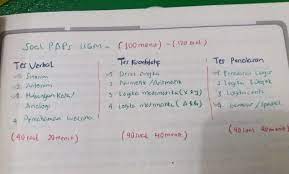 Soal PAPs UGM - (100 menit) - (120 soal)
Tes Verbal
1 Sinonim
2 Antonim
3 Hubungan Kata/
Analogi
4 Pemahaman wacana
(40 soal 20 menit)
Tes Kuantitatif
1 Deret Angka
2 Aritmatik /
3 Logika matematika (x & y)
4 Logika matematika (
(40 soal 40 menit)
Tes Penalaran
1 Penalaran Logis
2 Logika
3
4 Gambar / Spasial
(40 soal 40 menit)